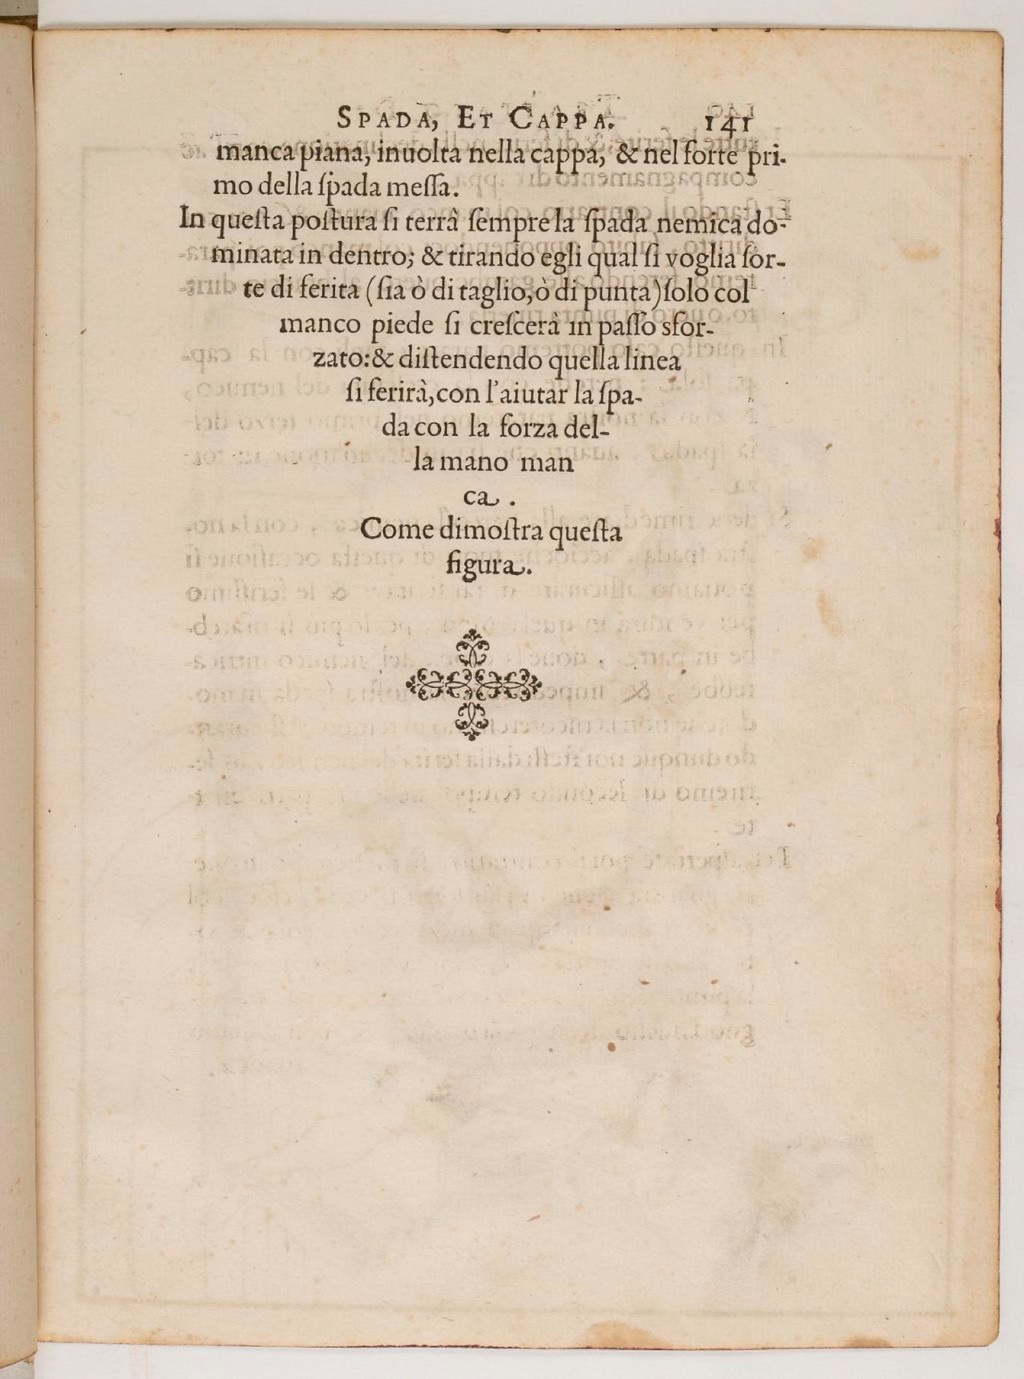 SPADA, ET CAPPA. 141
manca piana, inuolta nella cappa, & nel forte pri-
mo della ſpada meſſa.
In queſta poſtura ſi terrà ſempre la ſpada nemica do-
minata in dentro; & tirando egli qual ſi voglia ſor-
te di ferita (ſia ò di taglio, ò di punta) ſolo col
manco piede ſi creſcerà in paſſo sfor-
zato: & diſtendendo quella linea
ſi ferirà, con l'aiutar la ſpa-
da con la forza del-
la mano man
ca.
Come dimoſtra queſta
figura.